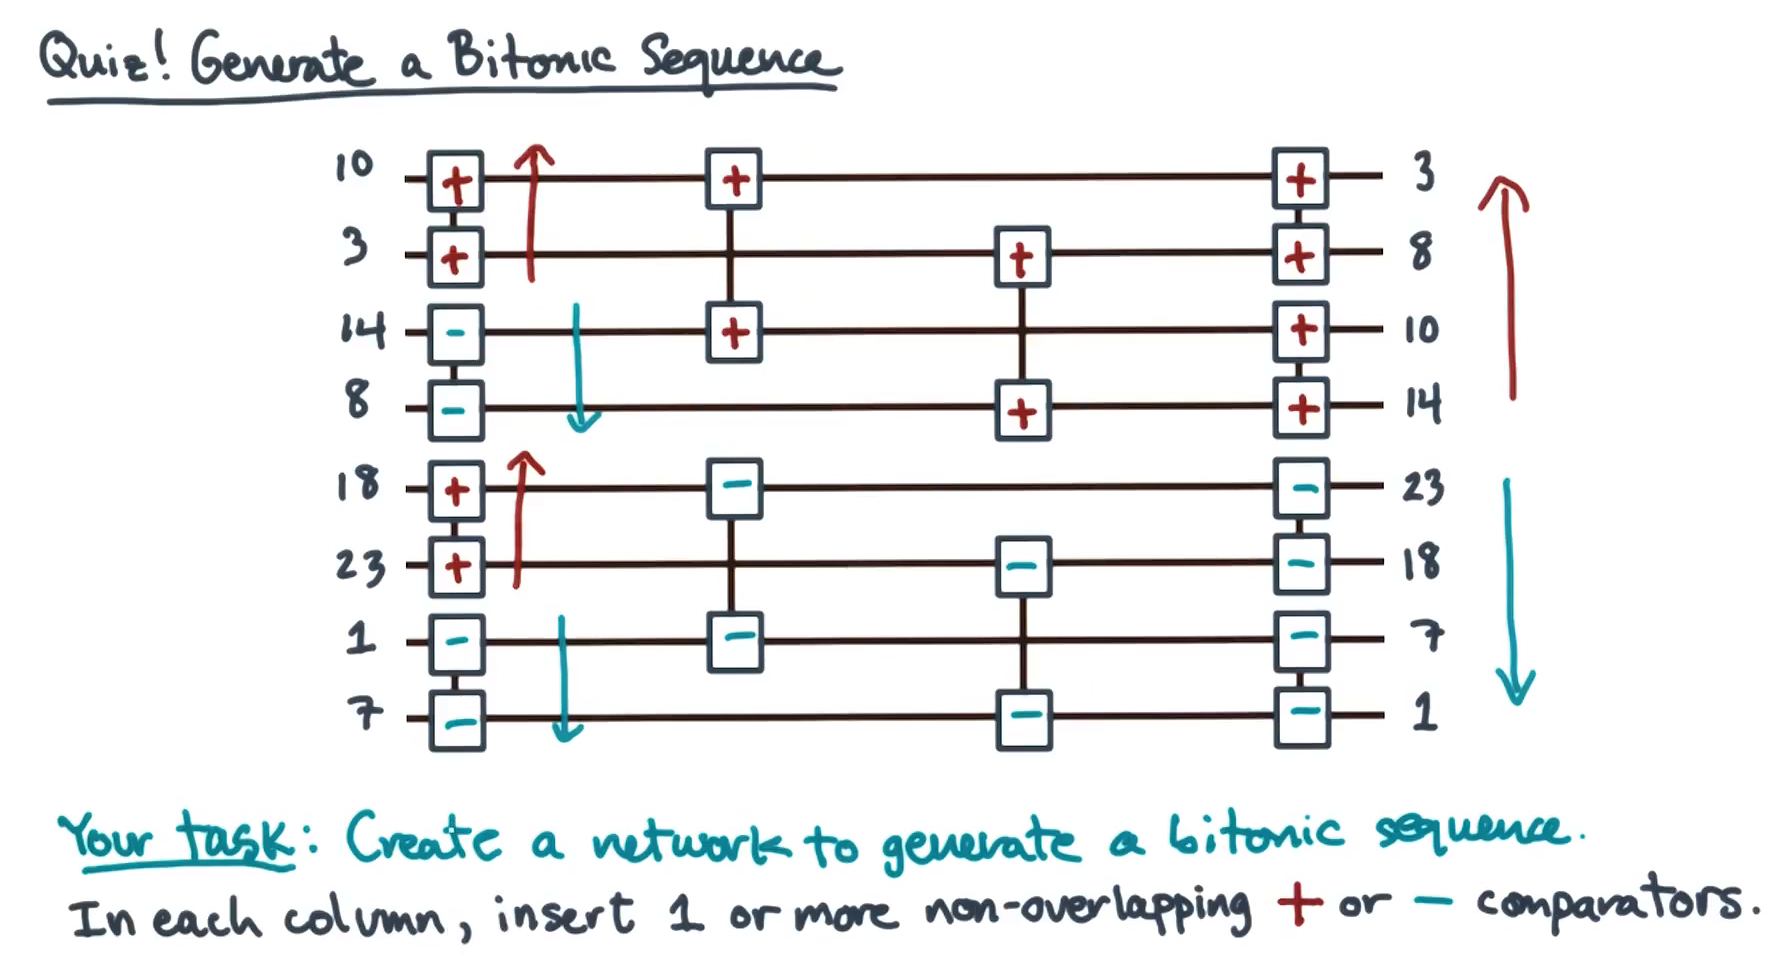 Quiz! Generate a Bitonic Sequence
10 + + + 3
3 + + + 8
14 - + + 10
8 - + + 14
18 + - - 23
23 + - - 18
1 - - - 7
7 - - - 1
Your task: Create a network to generate a bitonic sequence.
In each column, insert 1 or more non-overlapping + or - comparators.